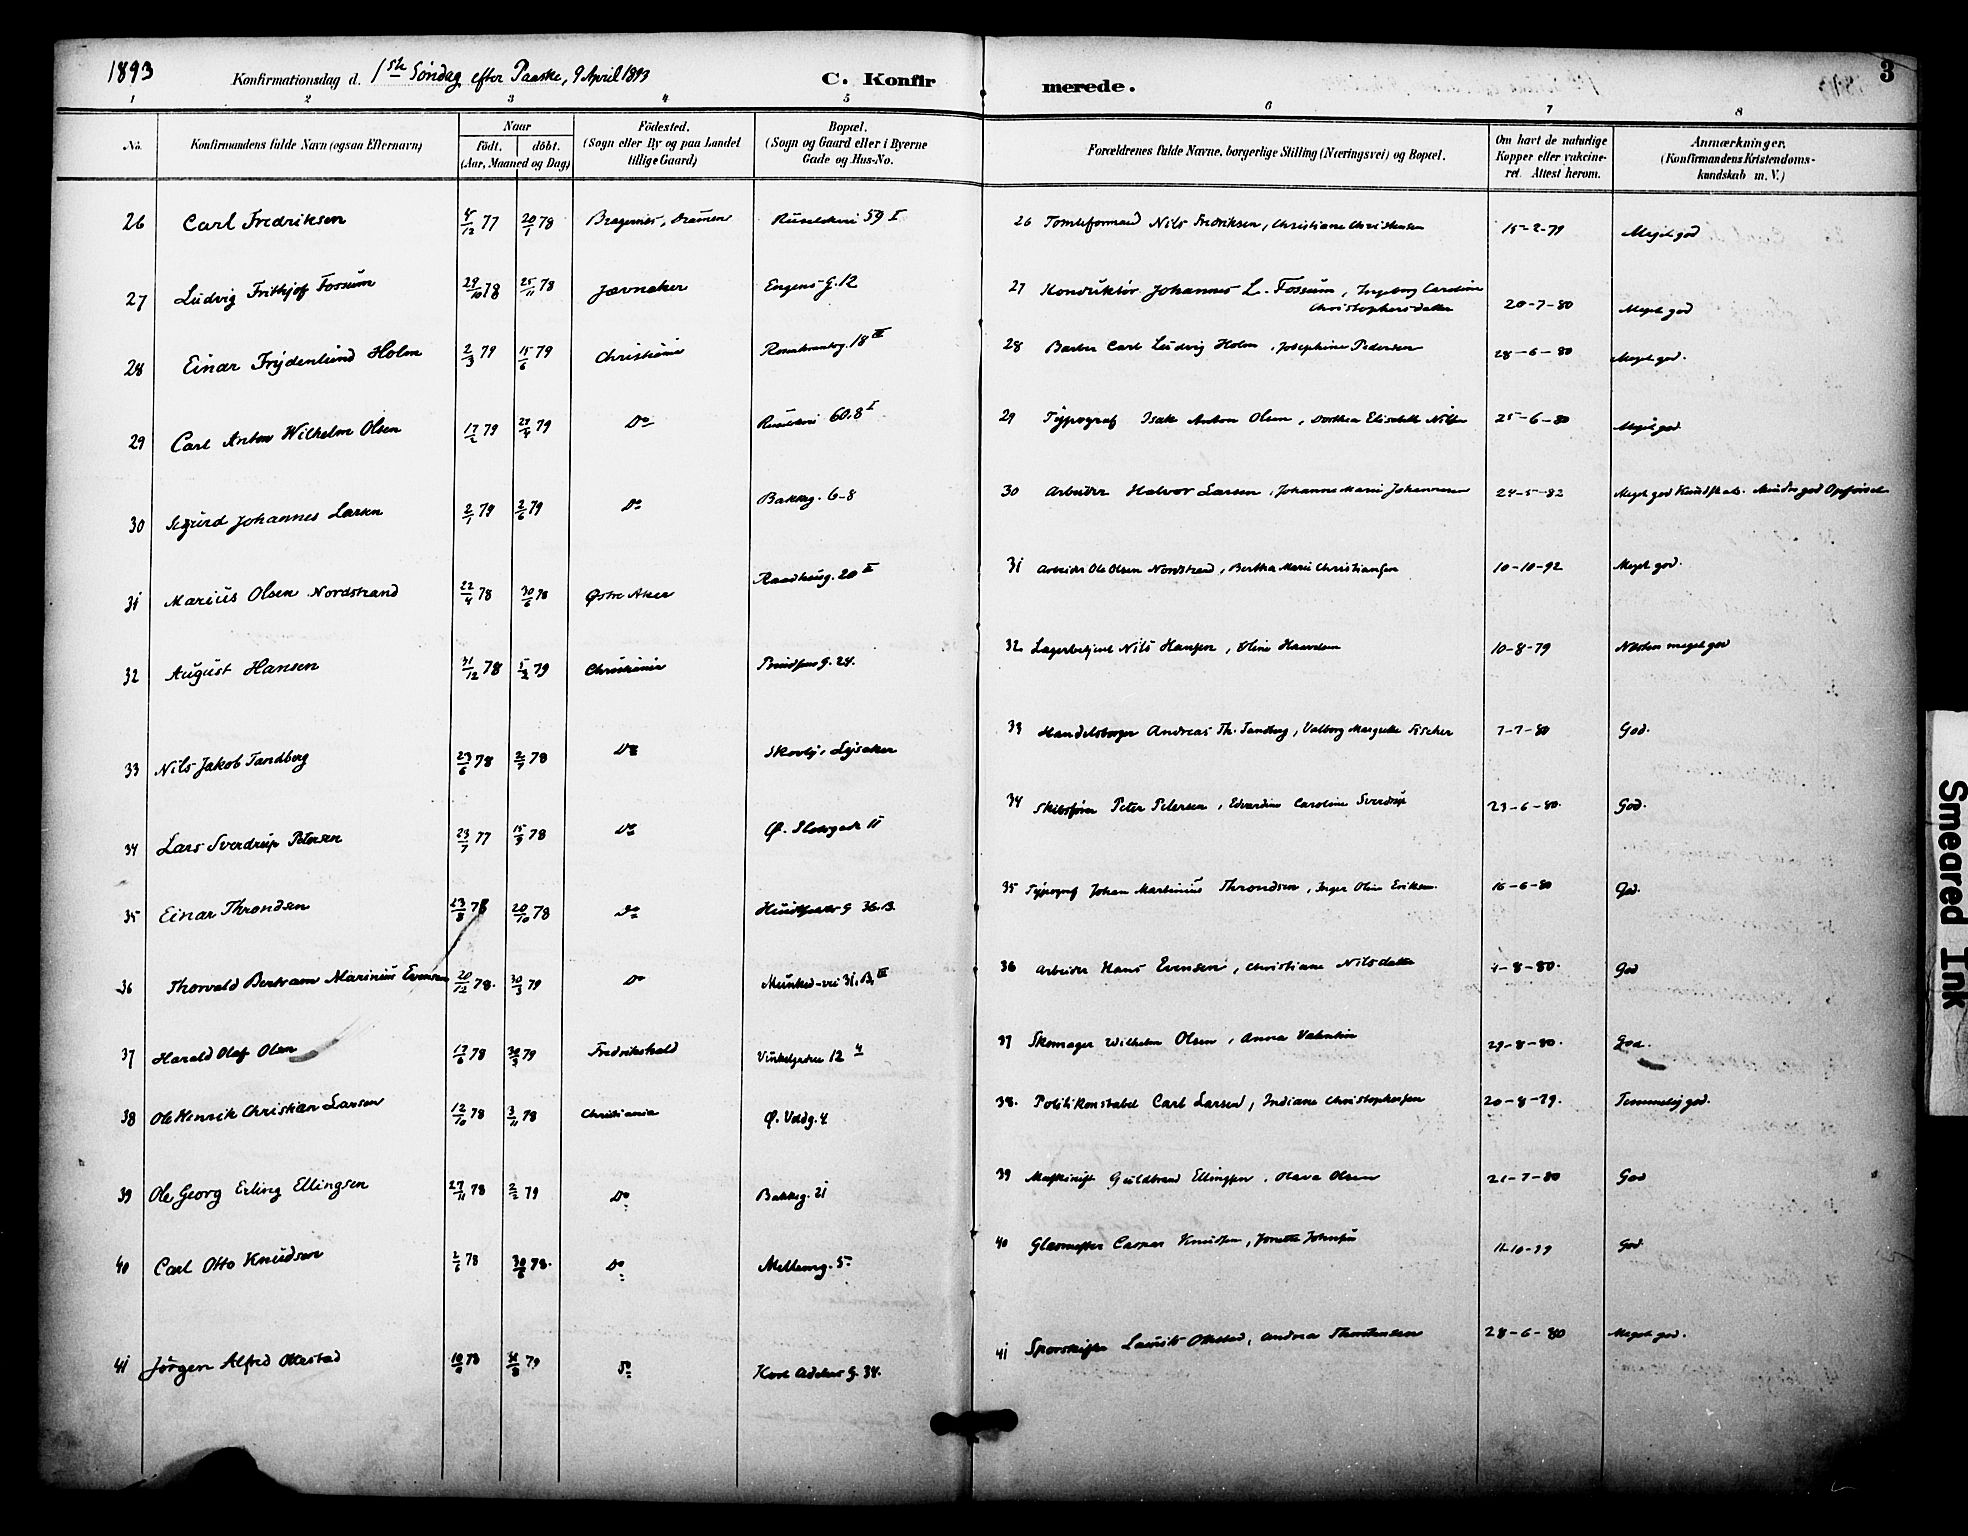 1893 Konfirmationsdag d. 1ste Söndag efter Paaske, 9 April 1893 C. Konfirmerede. 3
1 2 3 4 5 6 7 8
No. Konfirmandens fulde Navn (ogsaa Efternavn) Naar födt. döbt. (Aar, Maaned og Dag) Födested. (Sogn eller By og paa Landet tillige Gaard) Bopæl. (Sogn og Gaard eller i Byerne Gade og Hus-No. Forældrenes fulde Navne, borgerlige Stilling (Næringsvei) og Bopæl. Om havt de naturlige Kopper eller vakcineret. Attest herom. Anmærkninger. (Konfirmandens Kristendomskundskab m. V.)
26 Carl Fredriksen 4/12 77 20/1 78 Bragernes, Dramen Ruselökvei 59 I 26 Tomteformand Nils Fredriksen, Christiane Christensen 15-2-79 Meget god
27 Ludvig Frithjof Fossum 29/10 78 25/11 78 Jævnaker Engens G. 12 27 Konduktör Johannes L. Fossum, Ingeborg Caroline Christophersdatter 20-7-80 Meget god
28 Einar Frydenlund Holm 2/3 79 15/6 79 Christiania Rosenkrantzg. 18 III 28 Barber Carl Ludvig Holm, Josephine Pedersen 28-6-80 Meget god.
29 Carl Anton Wilhelm Olsen 17/2 79 27/4 79 Do 60.8 I 29 Typograf Isak Anton Olsen, Dorthea Elisabeth Nilsen 25-6-80 Meget god
30 Sigurd Johannes Larsen 2/1 79 2/6 79 Do Bakkeg. 6-8 30 Arbeider Halvor Larsen, Johanne Marie Johannesen 24-5-82 Meget god Kundskab. Mindre god Opførsel
31 Marius Olsen Nordstrand 22/4 78 30/6 78 Østre Aker Raadhusg. 20 II 31 Arbeider Ole Olsen Nordstrand, Bertha Marie Christiansen 10-10-92 Meget god.
32 August Hansen 31/12 78 5/2 79 Christiania G. 24. 32 Lagerbetjent Nils Hansen, Oline 10-8-79 Næsten meget god
33 Nils Jakob Tandberg 23/6 78 2/7 78 Do Skovly, Lysaker 33 Handelsborger Andreas Th. Tandberg, Valborg Margrethe Fischer 7-7-80 God.
34 Lars Sverdrup Petersen 23/7 77 15/9 78 Do Ø. Slotsgade 11 34 Skibsfører Peter Petersen, Edvardine Caroline Sverdrup 23-6-80. God.
35 Einar Throndsen 23/8 78 20/10 78 Do G 36.B. 35 Typograf Johan Martinius Throndsen, Inger Oline Eriksen. 16-6-80 God.
36 Thorvald Bertram Marinius Evensen 20/12 78. 30/3 79 Do Munked-vei 31.B. III 36 Arbeider Hans Evensen, Christiane Nilsdatter 4-8-80. God
37 Harald Olaf Olsen 17/6 78 30/3 79 Fredrikshald Vinkelgaden 12 4 37 Skomager Wilhelm Olsen, Anna Valentin 29-8-80. God.
38 Ole Henrik Christian Larsen 12/10 78 3/11 78 Christiania Ø. Voldg. 4 38. Politikonstabel Carl Larsen, Indiane Christophersen 20-8-79. Temmelig god.
39 Ole Georg Erling Ellingsen 27/11 78 2/2 79 Do Bakkeg. 21 39 Maskinist Guldbrand Ellingsen, Olava Olsen 21-7-80 God
40 Carl Otto Knudsen 2/6 78 30/6 78. Do Mellemg. 5 40 Glasmester Caspar Knudsen, Jonette Johnsen God
41 Jörgen Alfred Ottestad 10/9 78 31/8 79 Do G. 34. 41 Lauritz Ottestad, Andrea Thorstensen 28-6-80 Meget god.
Smeared Ink